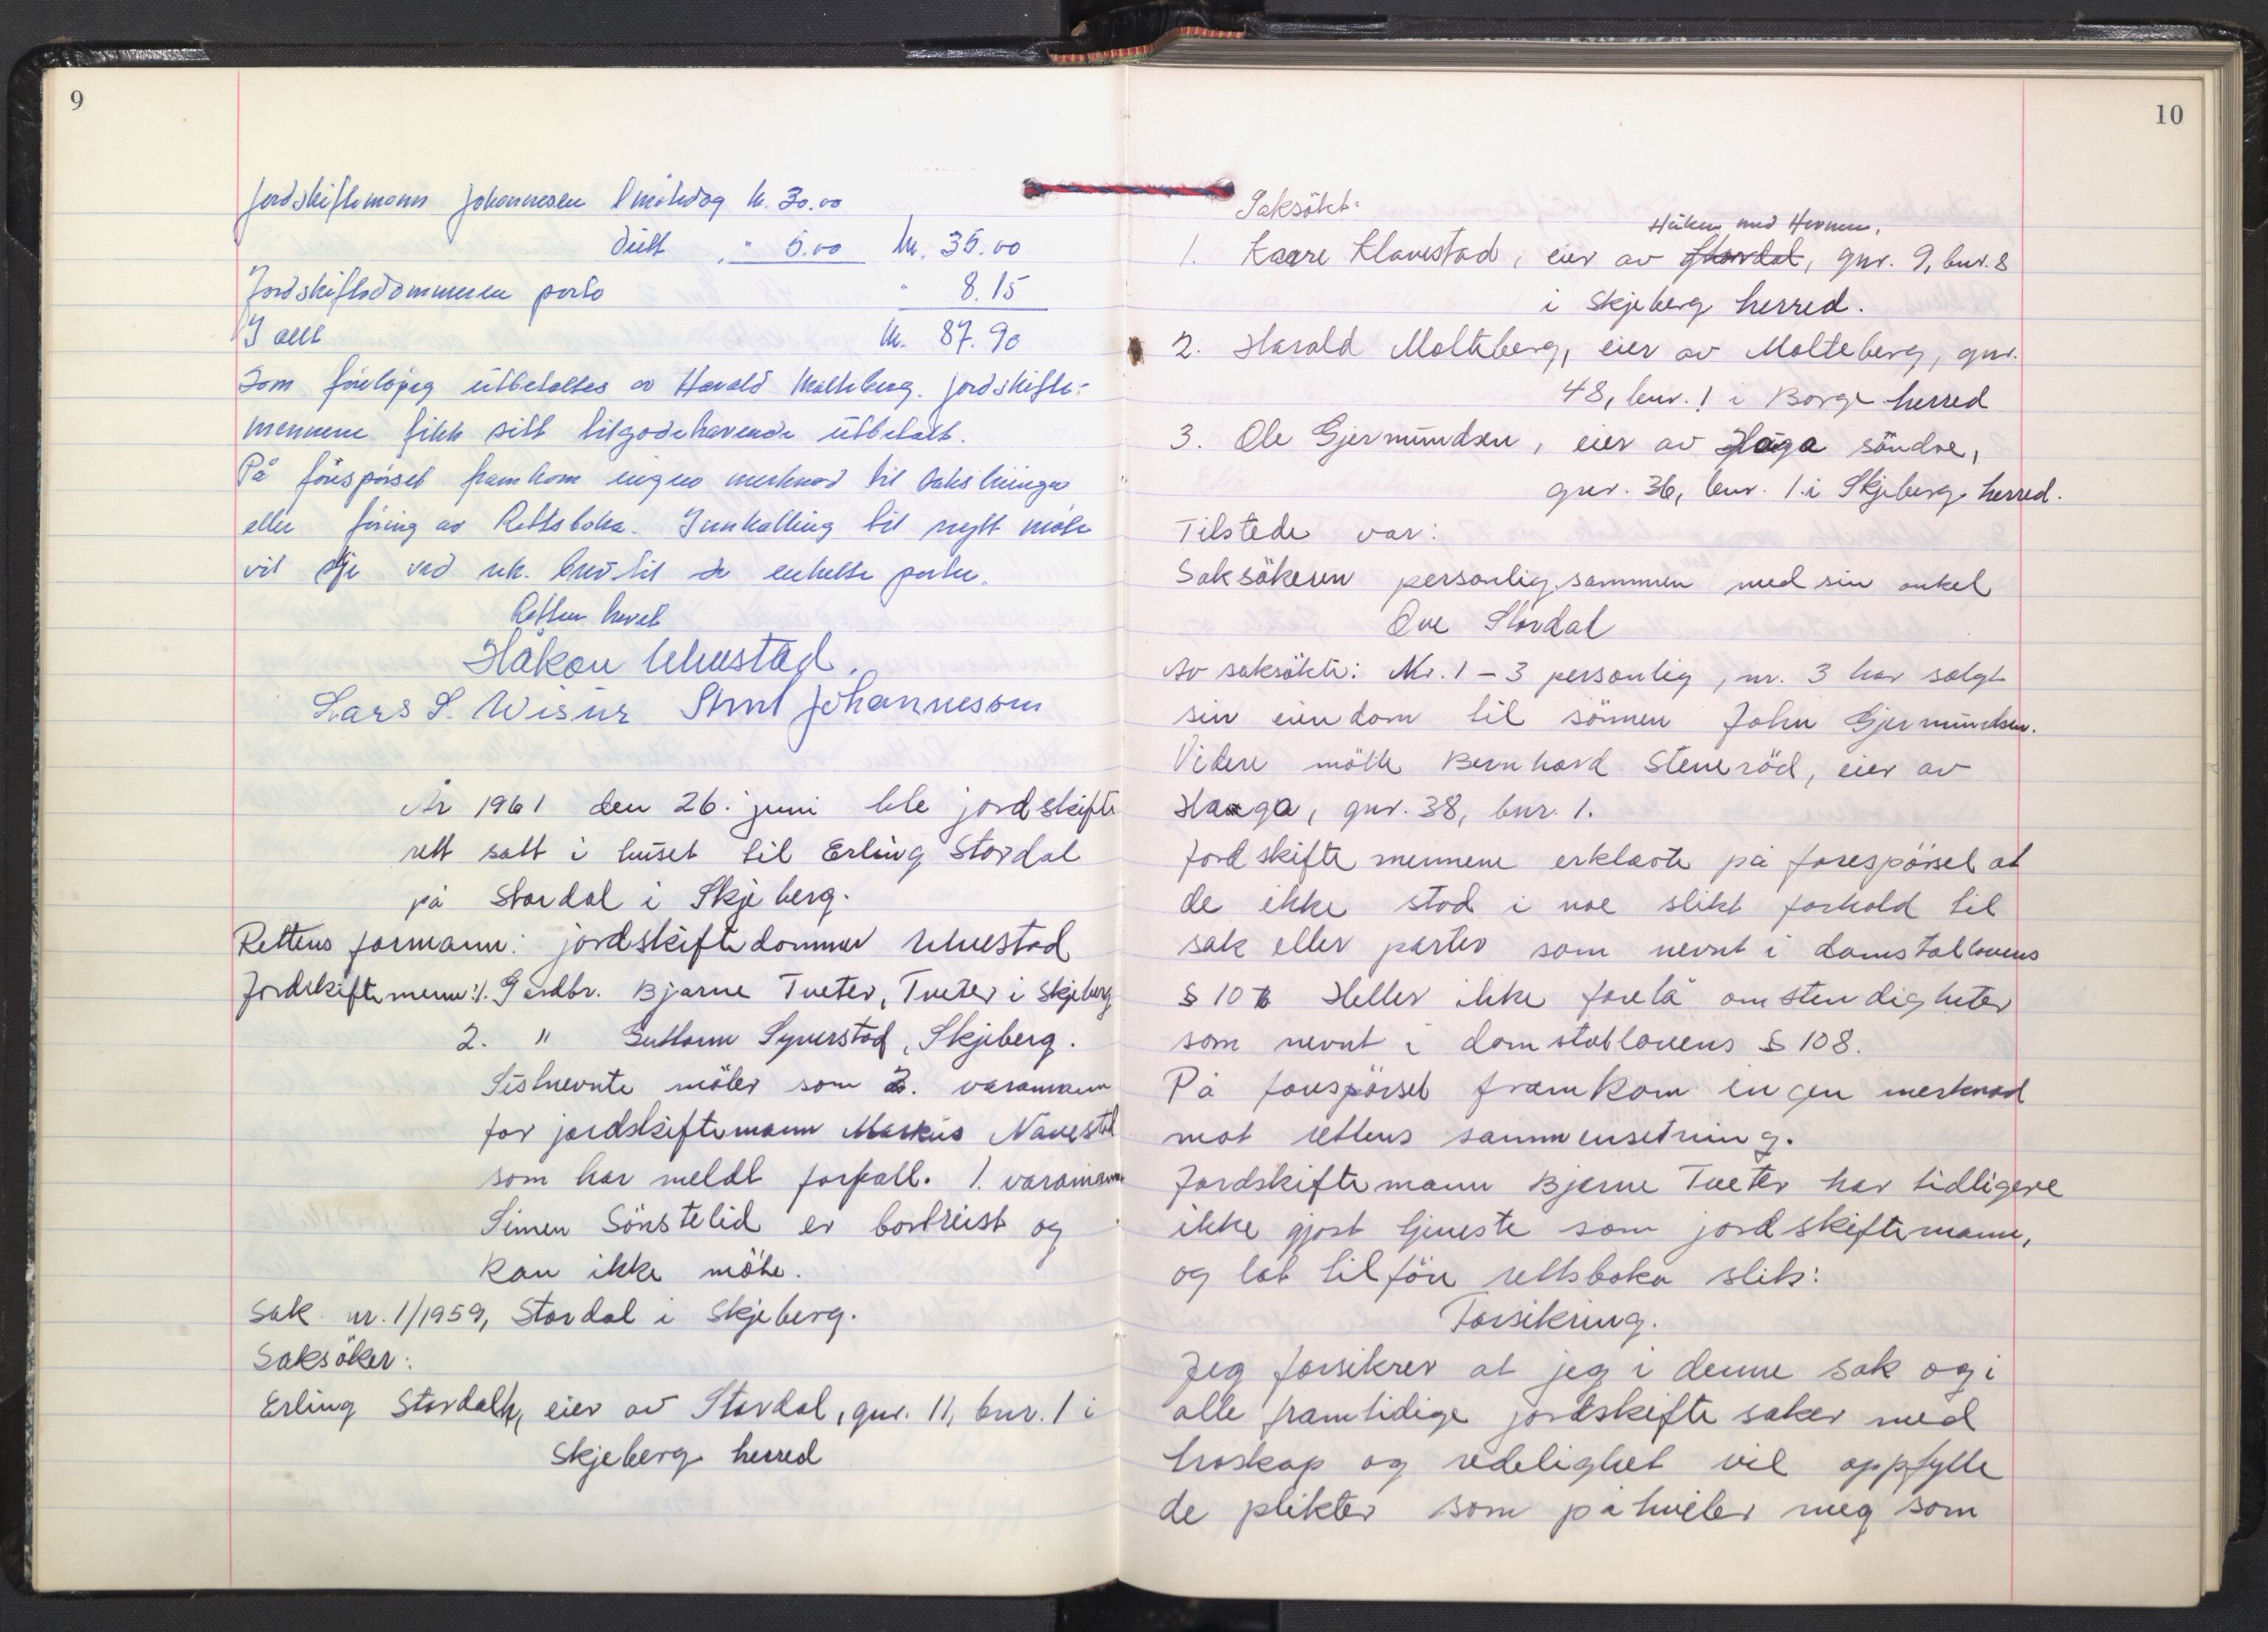 9
Jordskiftemann Johannesen 1 møtedag kr. 30.00
diett " 5.00 kr. 35.00
Jordskiftedommeren porto " 8.15
I alt kr. 87.90
som foreløpig utbetaltes av Harald Molteberg. Jordskifte-
mennene fikk sitt tilgodehavende utbetalt.
På forespørsel framkom ingen merknad til
eller føring av Rettsboka. Innkalling til nytt møte
vil skje ved rek. brev til de enkelte parter.
Retten hevet
Håkon
Lars S. Arnt Johannesen
År 1961 den 26. juni ble jordskifte
rett satt i huset til Erling Stordal
på Stordal i Skjeberg.
Rettens formann: jordskiftedommer
Jordskiftemenn: 1. Gardbr. Bjarne Tveter, Tveter i Skjeberg
2. " Guttorm Synerstad, Skjeberg.
Sistnevnte møter som 2. varamann
for jordskiftemann Markus Navestad
som har meldt forfall. 1. varamann
Simen Sönstelid er bortreist og
kan ikke möte.
Sak nr. 1/1959, Stordal i Skjeberg.
Saksöker:
Erling Stordal, eier av Stordal, gnr. 11, bnr. 1 i
Skjeberg herred
10
Saksökt:
med
1. Kaare Klavestad, eier av Stordal, gnr. 9, bnr. 8
i Skjeberg herred.
2. Harald Molteberg, eier av Molteberg, gnr.
48, bnr. 1 i Borge herred
3. Ole Gjermundsen, eier av Haga söndre,
gnr. 36, bnr. 1 i Skjeberg herred.
Tilstede var:
Saksökeren personlig sammen med sin onkel
Ove Stordal
Av saksökte: Nr. 1 - 3 personlig, nr. 3 har solgt
sin eiendom til sönnen John Gjermundsen.
Videre mötte Bernhard Steneröd, eier av
Haaga, gnr. 38, bnr. 1.
Jordskiftemennene erklærte på forespörsel at
de ikke stod i noe slikt forhold til
sak eller parter som nevnt i domstollovens
§ 106 Heller ikke forelå omstendigheter
som nevnt i domstollovens § 108.
På forespörsel framkom ingen merknad
mot rettens sammensetning.
Jordskiftemann Bjarne Tveter har tidligere
ikke gjort tjeneste som jordskiftemann,
og lot tilföre rettsboka slik:
Forsikring.
Jeg forsikrer at jeg i denne sak og i
alle framtidige jordskiftesaker med
troskap og redelighet vil oppfylle
de plikter som påhviler meg som